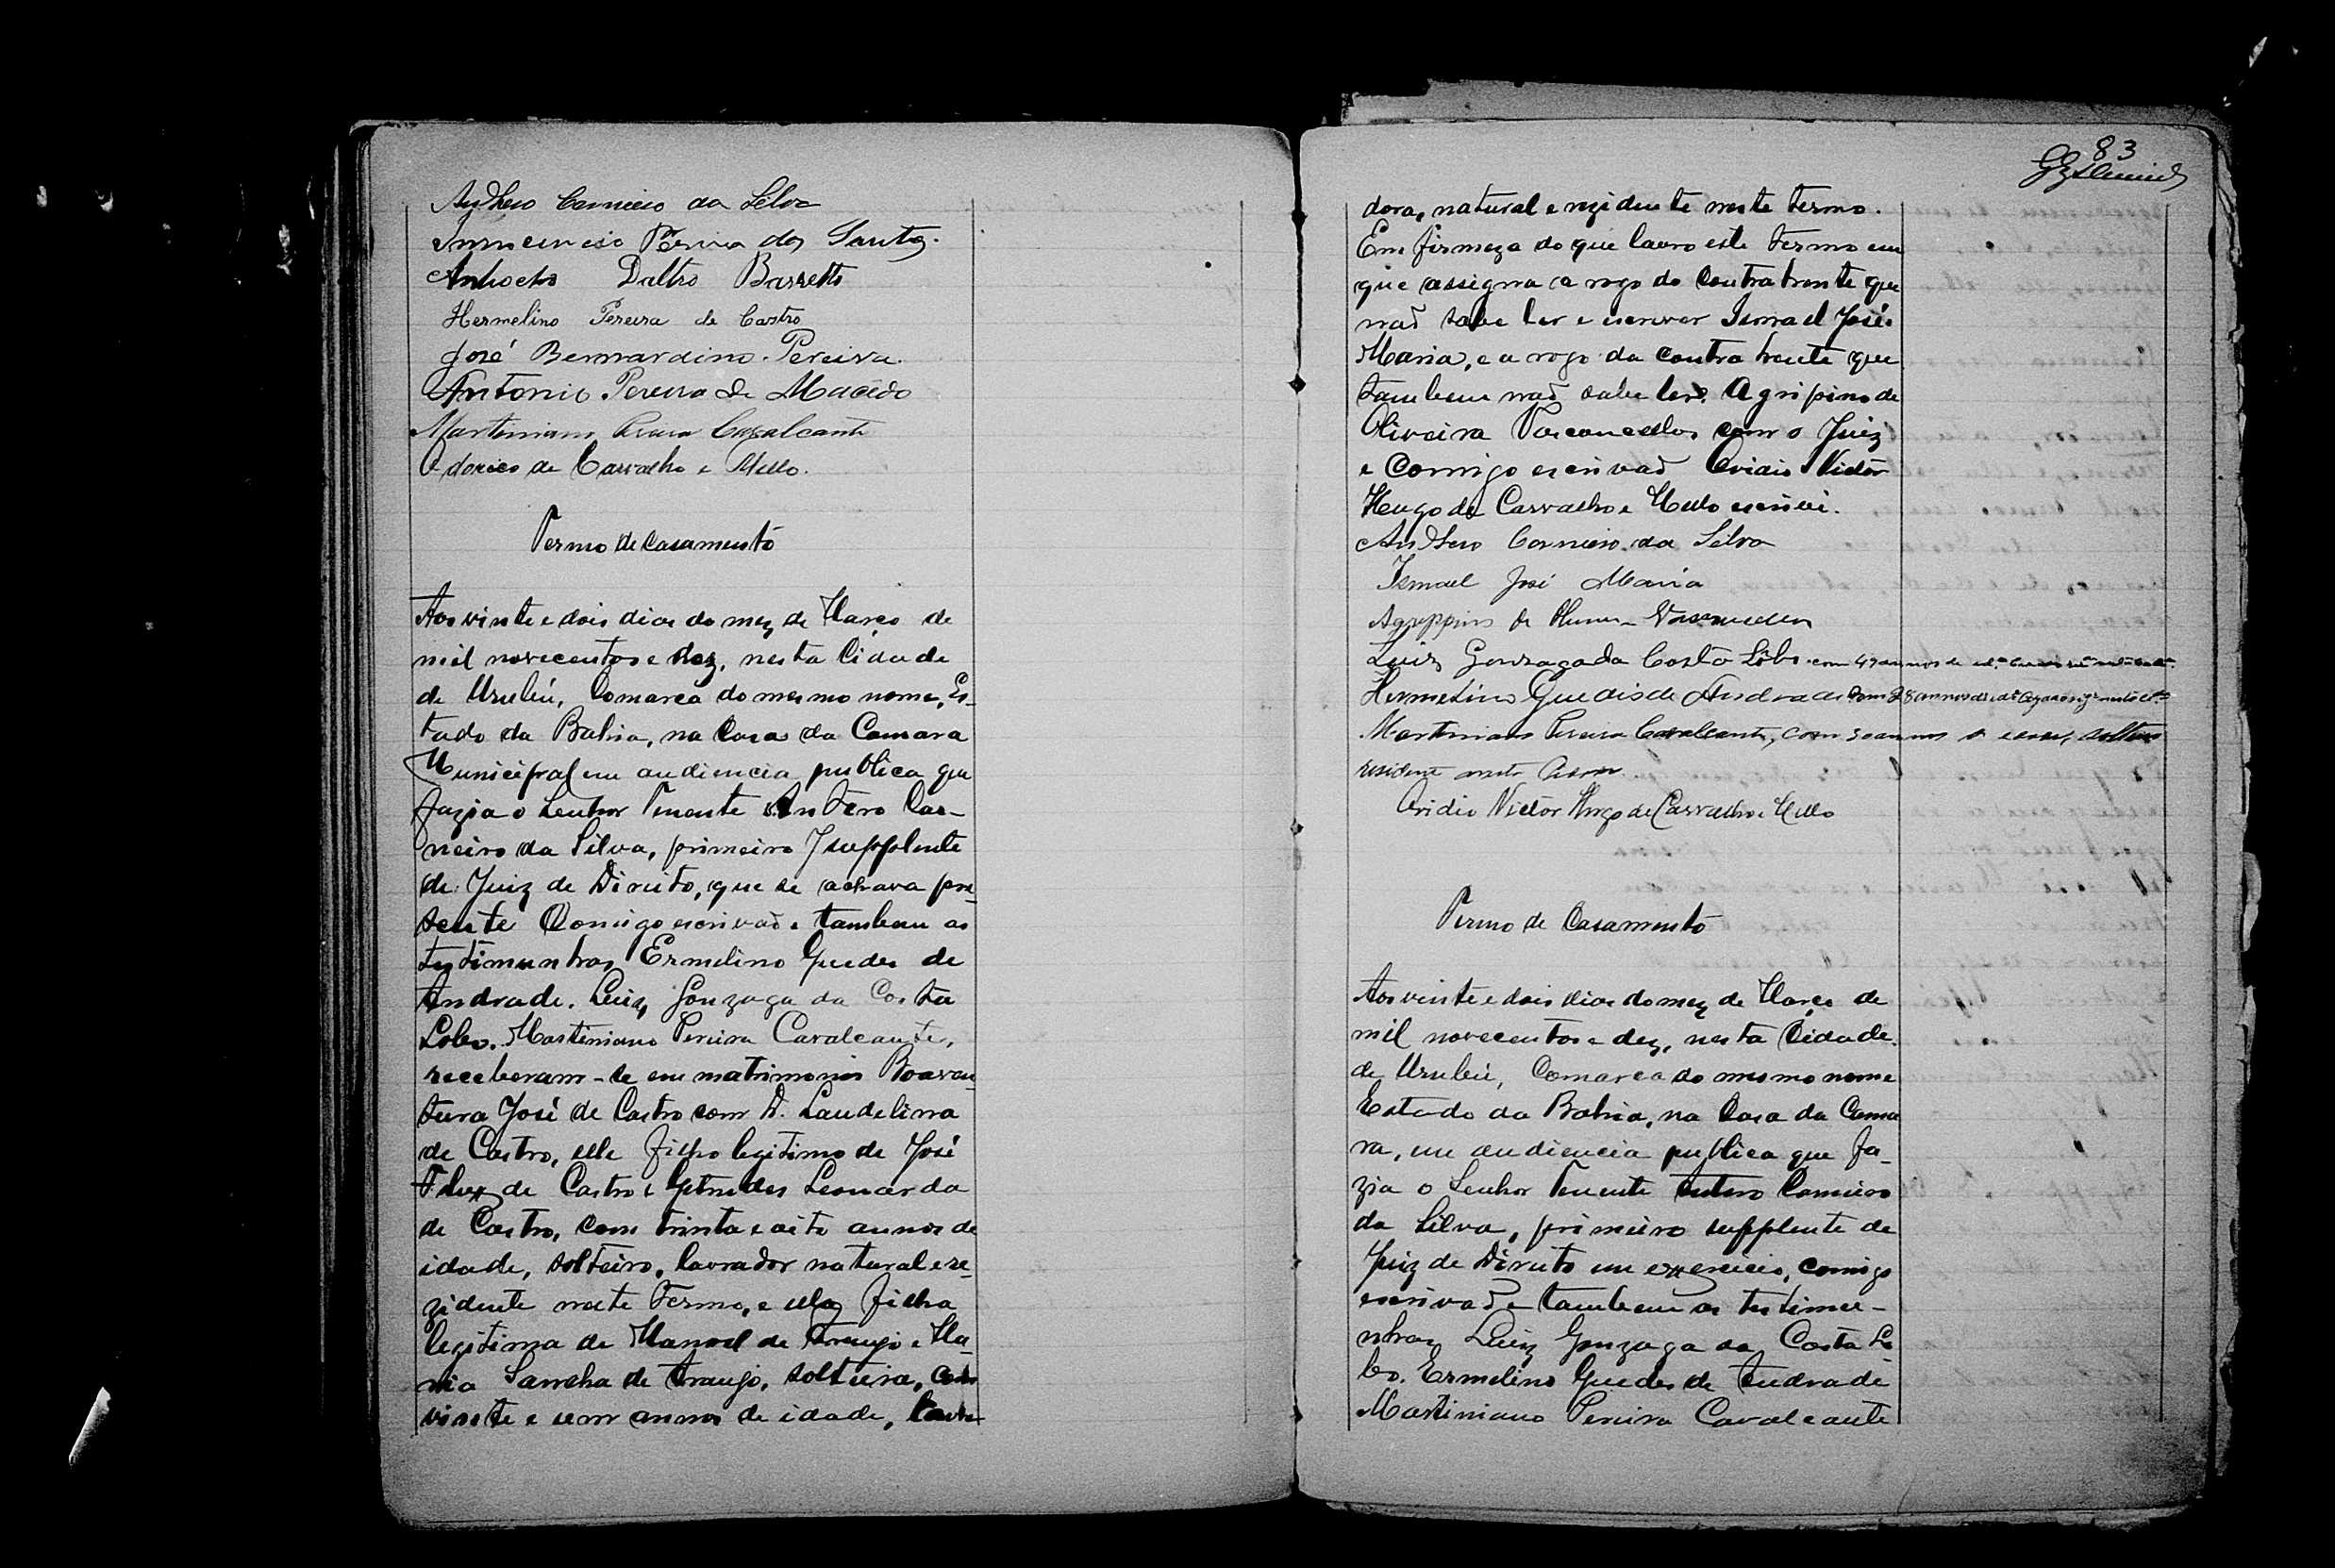 Anthero Carneiro da Silva
Innocencio Pereira dos Santos.
Antiocho Daltro Barretto
Hermelino Pereira de Castro
José Bernardino Pereira.
Antonio Pereira de Macêdo
Martiniano Pereira Cavalcante
Odorico de Carvalho e Mello.
Termo de Casamento
Aos vinte e dois dias do mez de Março de
mil novecentos e dez, nesta Cidade
de Urubú, Comarca do mesmo nome, Es-
tado da Bahia, na Casa da Camara
Municipal em audiencia publica que
fazia o Senhor Tenente Antero Car-
neiro da Silva, primeiro supplente
de Juiz de Direito, que se achava pre-
sente Comigo escrivaõ e tambem as
testimunhas Ermelino Guedes de
Andrade. Luiz Gonzaga da Costa
Lobo. Martiniano Pereira Cavalcante,
receberam-se em matrimonio Boaven-
tura José de Castro com D. Laudelina
de Castro, elle filho legitimo de José
Felix de Castro e Getrudes Leonarda
de Castro, com trinta e oito annos de
idade, solteiro, lavrador natural e re-
zidente neste Termo, e ella filha
legitima de Manoel de Araujo e Ma-
ria Sancha de Araujo, solteira, com
vinte e um annos de idade, lavra-
83
dora, natural e rezidente neste termo.
Em firmeza do que lavro este termo em
que assigna a rogo do Contratrente que
naõ sabe ler e escrever Ismael José
Maria, e a rogo da contratrente que
tambem naõ sabe ler, Agripino de
Oliveira Vasconcellos com o Juiz
e Comigo escrivaõ Ovidio Victor
Hugo de Carvalho e Mello escrivi.
Anthero Carneiro da Silva
Ismael José Maria
Agrippino de Oliveira Vasconcellos
Luiz Gonzaga da Costa Lôbo com 47 annos de
Hermelino Guedis de Andrade com 28 annos de
Martiniano Pereira Cavalcante, com annos solteiro
residente neste
Ovidio Victor Hugo de Carvalho e Mello
Termo de Casamento
Aos vinte e dois dias do mez de Março de
mil novecentos e dez, nesta Cidade
de Urubú, Comarca do mesmo nome
Estado da Bahia, na Casa da Cama
ra, em audiencia publica que fa-
zia o Senhor Tenente Antero Carneiro
da Silva, primeiro supplente de
Juiz de Direito em exzercicio, comigo
escrivaõ e tambem as testimu-
nhas Luiz Gonzaga da Costa Lo
bo. Ermelino Guedes de Andrade
Martiniano Pereira Cavalcante